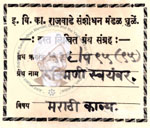 इ. वि. का. राजवाडे संशोधन मंडळ धुळे.
हस्त लिखित ग्रंथ संग्रह
ग्रंथ
ग्रंथ नाम रुक्मिणी स्वयंवर.
विषय मराठी काव्य.